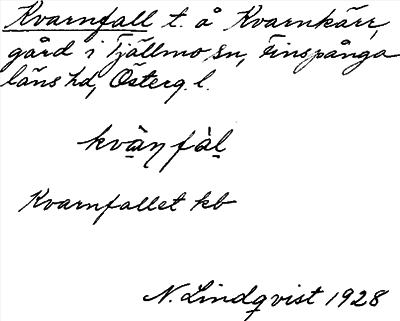 Kvarnfall t. å Kvarnkärr,
gård i Tjällmo sn, Finspånga
läns hd, Österg. l.
Kvarnfallet kb
N. Lindqvist 1928